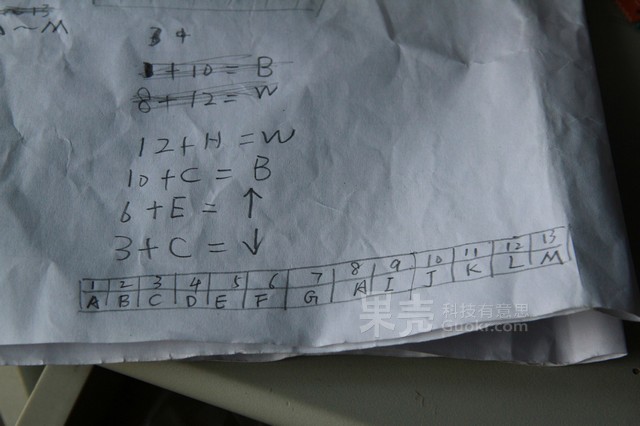 ~M
3 4
1+10=B
8+12=W
12+H=W
10+C=B
6+E=↑
3+C=↓
1 2 3 4 5 6 7 8 9 10 11 12 13
A B C D E F G H I J K L M
果壳 科技有意思
Guokr.com